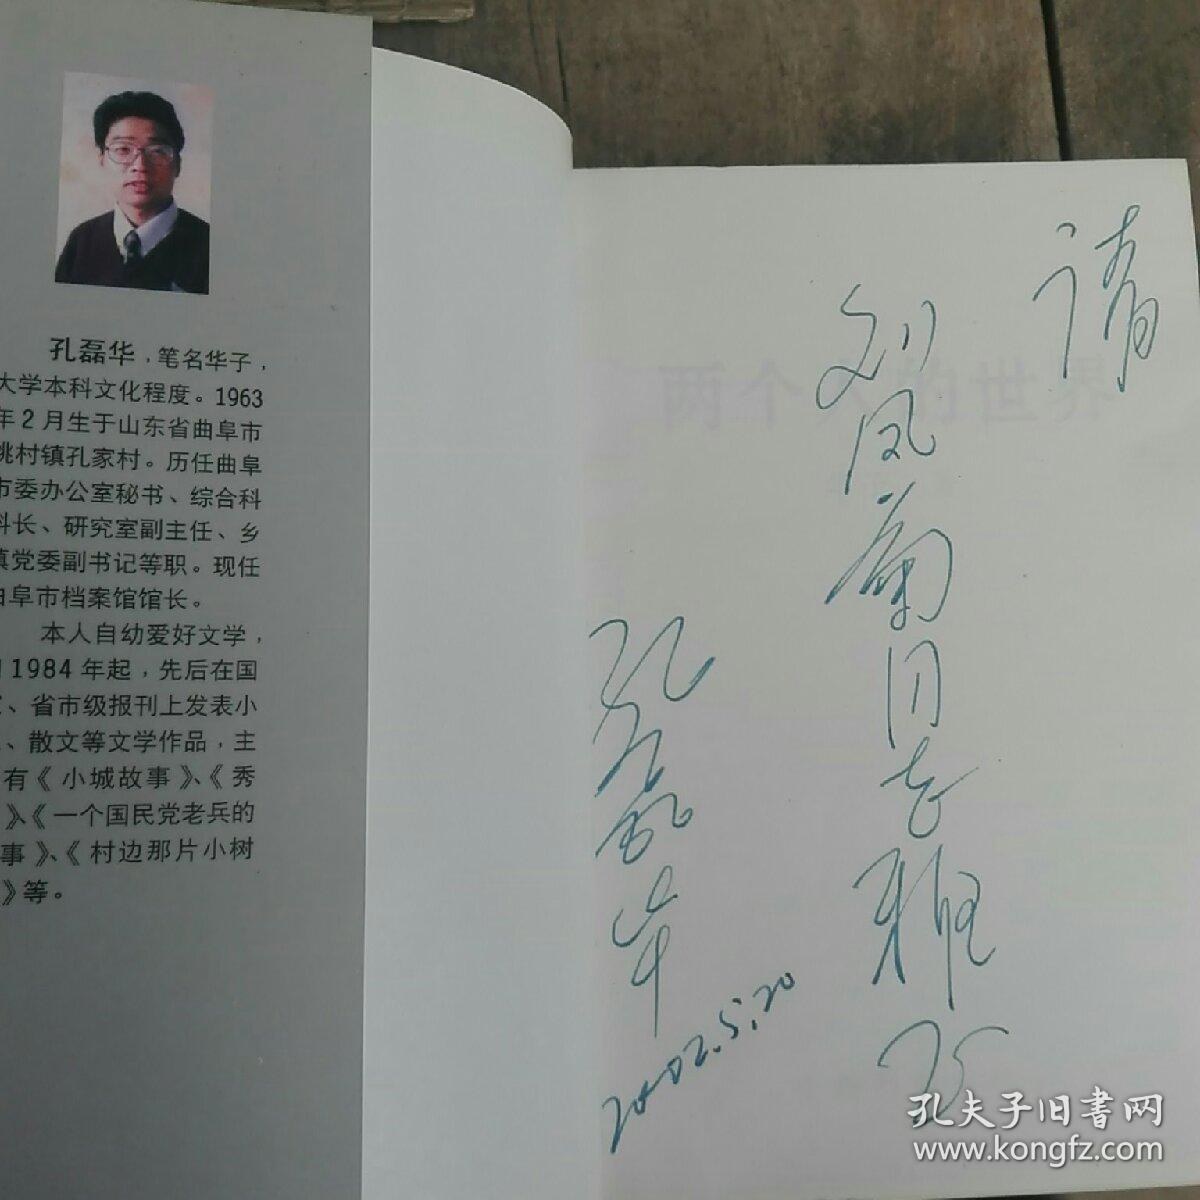 孔磊华，笔名华子，
大学本科文化程度。1963
年2月生于山东省曲阜市
姚村镇孔家村。历任曲阜
市委办公室秘书、综合科
科长、研究室副主任、乡
镇党委副书记等职。现任
曲阜市档案馆馆长。
本人自幼爱好文学，
1984年起，先后在国
、省市级报刊上发表小
、散文等文学作品，主
有《小城故事》、《秀
》、《一个国民党老兵的
事》、《村边那片小树
》等。
两个人的世界
请
刘凤菊同志雅正
孔磊华
2002.5.20
孔夫子旧书网
www.kongfz.com